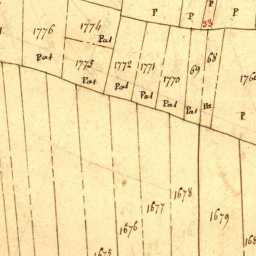 P
P
P
P
33
1774
1776
Pat
68
Pat
1773
1772
1771
1770
69
176
Pat
Pat
Pat
Pat
Pat
Pa
P
1678
1677
1679
1676
168
1675